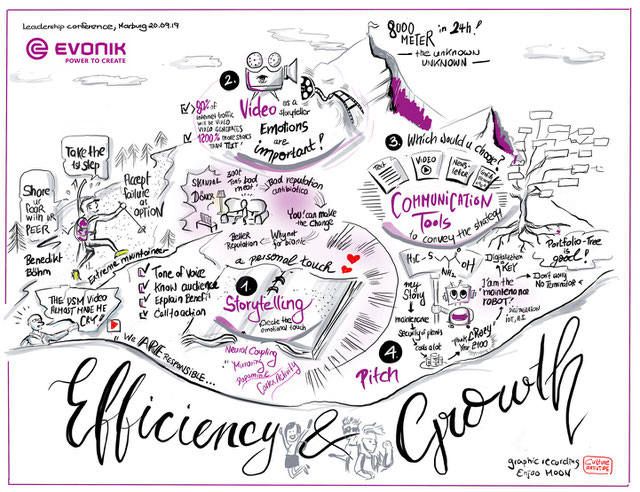 Leadership conference, Marburg 20.09.19
EVONIK
POWER TO CREATE
8000
METER in 24h!
the unknown
UNKNOWN
2.
Video as a
storyteller
Emotions
are
important!
>80% of
internet traffic
will be VIDEO
VIDEO GENERATES
1200% more shares
THAN TEXT!
Take the
1st step
Share
ur fear
with ur
PEER
Accept
failure
as
OPTION
Benedikt
Böhm
Extreme mountaineer
SKANDAL
DÖNER
300t
Tons bad
meat
Bad reputation
antibiotica
You! can make
the change
Better
Reputation
Why not
for bionic
a personal touch
3. Which would u choose?
Post
VIDEO
News-
letter
COMMUNICATION
TOOLS
to convey the strategy
Portfolio-Tree
is
great!
THE DSM VIDEO
ALMOST MADE ME
CRY!
Tone of Voice
Know audience
Explain Benefit
Call to action
1.
Storytelling
Create the
emotional touch
Neural Coupling
Mirroring
Dopamine
Cortex Activity
We ARE RESPONSIBLE...
H3C-S
OH
NH2
Digitalization
KEY
my
Story
maintenance
Security of plants
costs a lot
I am the
maintenance
robot!
Don't worry
No Terminator
DIGITALISATION
IoT, A.I.
Think CRAZY
Year 2100
4.
Pitch
Efficiency & Growth
graphic recording
Enjoo MOON
CULTURE